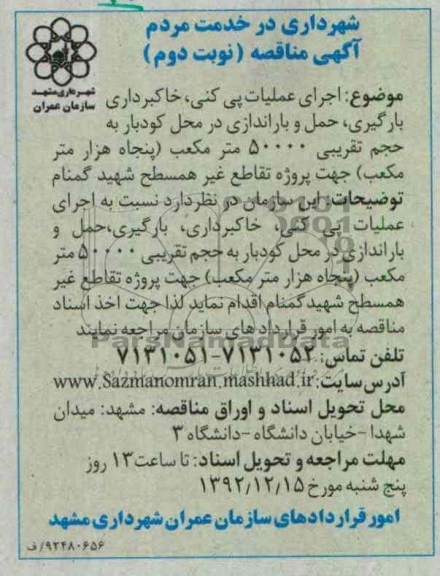 شهرداری در خدمت مردم
آگهی مناقصه (نوبت دوم)
شهرداری مشهد
سازمان عمران
موضوع: اجرای عملیات پی کنی، خاکبرداری
بارگیری، حمل و باراندازی در محل کودبار به
حجم تقریبی ۵۰۰۰۰ متر مکعب (پنجاه هزار متر
مکعب) جهت پروژه تقاطع غیر همسطح شهید گمنام
توضیحات: این سازمان در نظر دارد نسبت به اجرای
عملیات پی کنی، خاکبرداری، بارگیری، حمل و
باراندازی در محل کودبار به حجم تقریبی ۵۰۰۰۰ متر
مکعب (پنجاه هزار متر مکعب) جهت پروژه تقاطع غیر
همسطح شهید گمنام اقدام نماید لذا جهت اخذ اسناد
مناقصه به امور قرارداد های سازمان مراجعه نمایند
ParsNamadData
تلفن تماس: ۷۱۳۱۰۵۲-۷۱۳۱۰۵۱
آدرس سایت: www.Sazmanomran.mashhad.ir
محل تحویل اسناد و اوراق مناقصه: مشهد: میدان
شهدا -خیابان دانشگاه -دانشگاه ۳
مهلت مراجعه و تحویل اسناد: تا ساعت ۱۳ روز
پنج شنبه مورخ ۱۳۹۲/۱۲/۱۵
امور قراردادهای سازمان عمران شهرداری مشهد
۹۲۴۸۰۶۵۶/ف